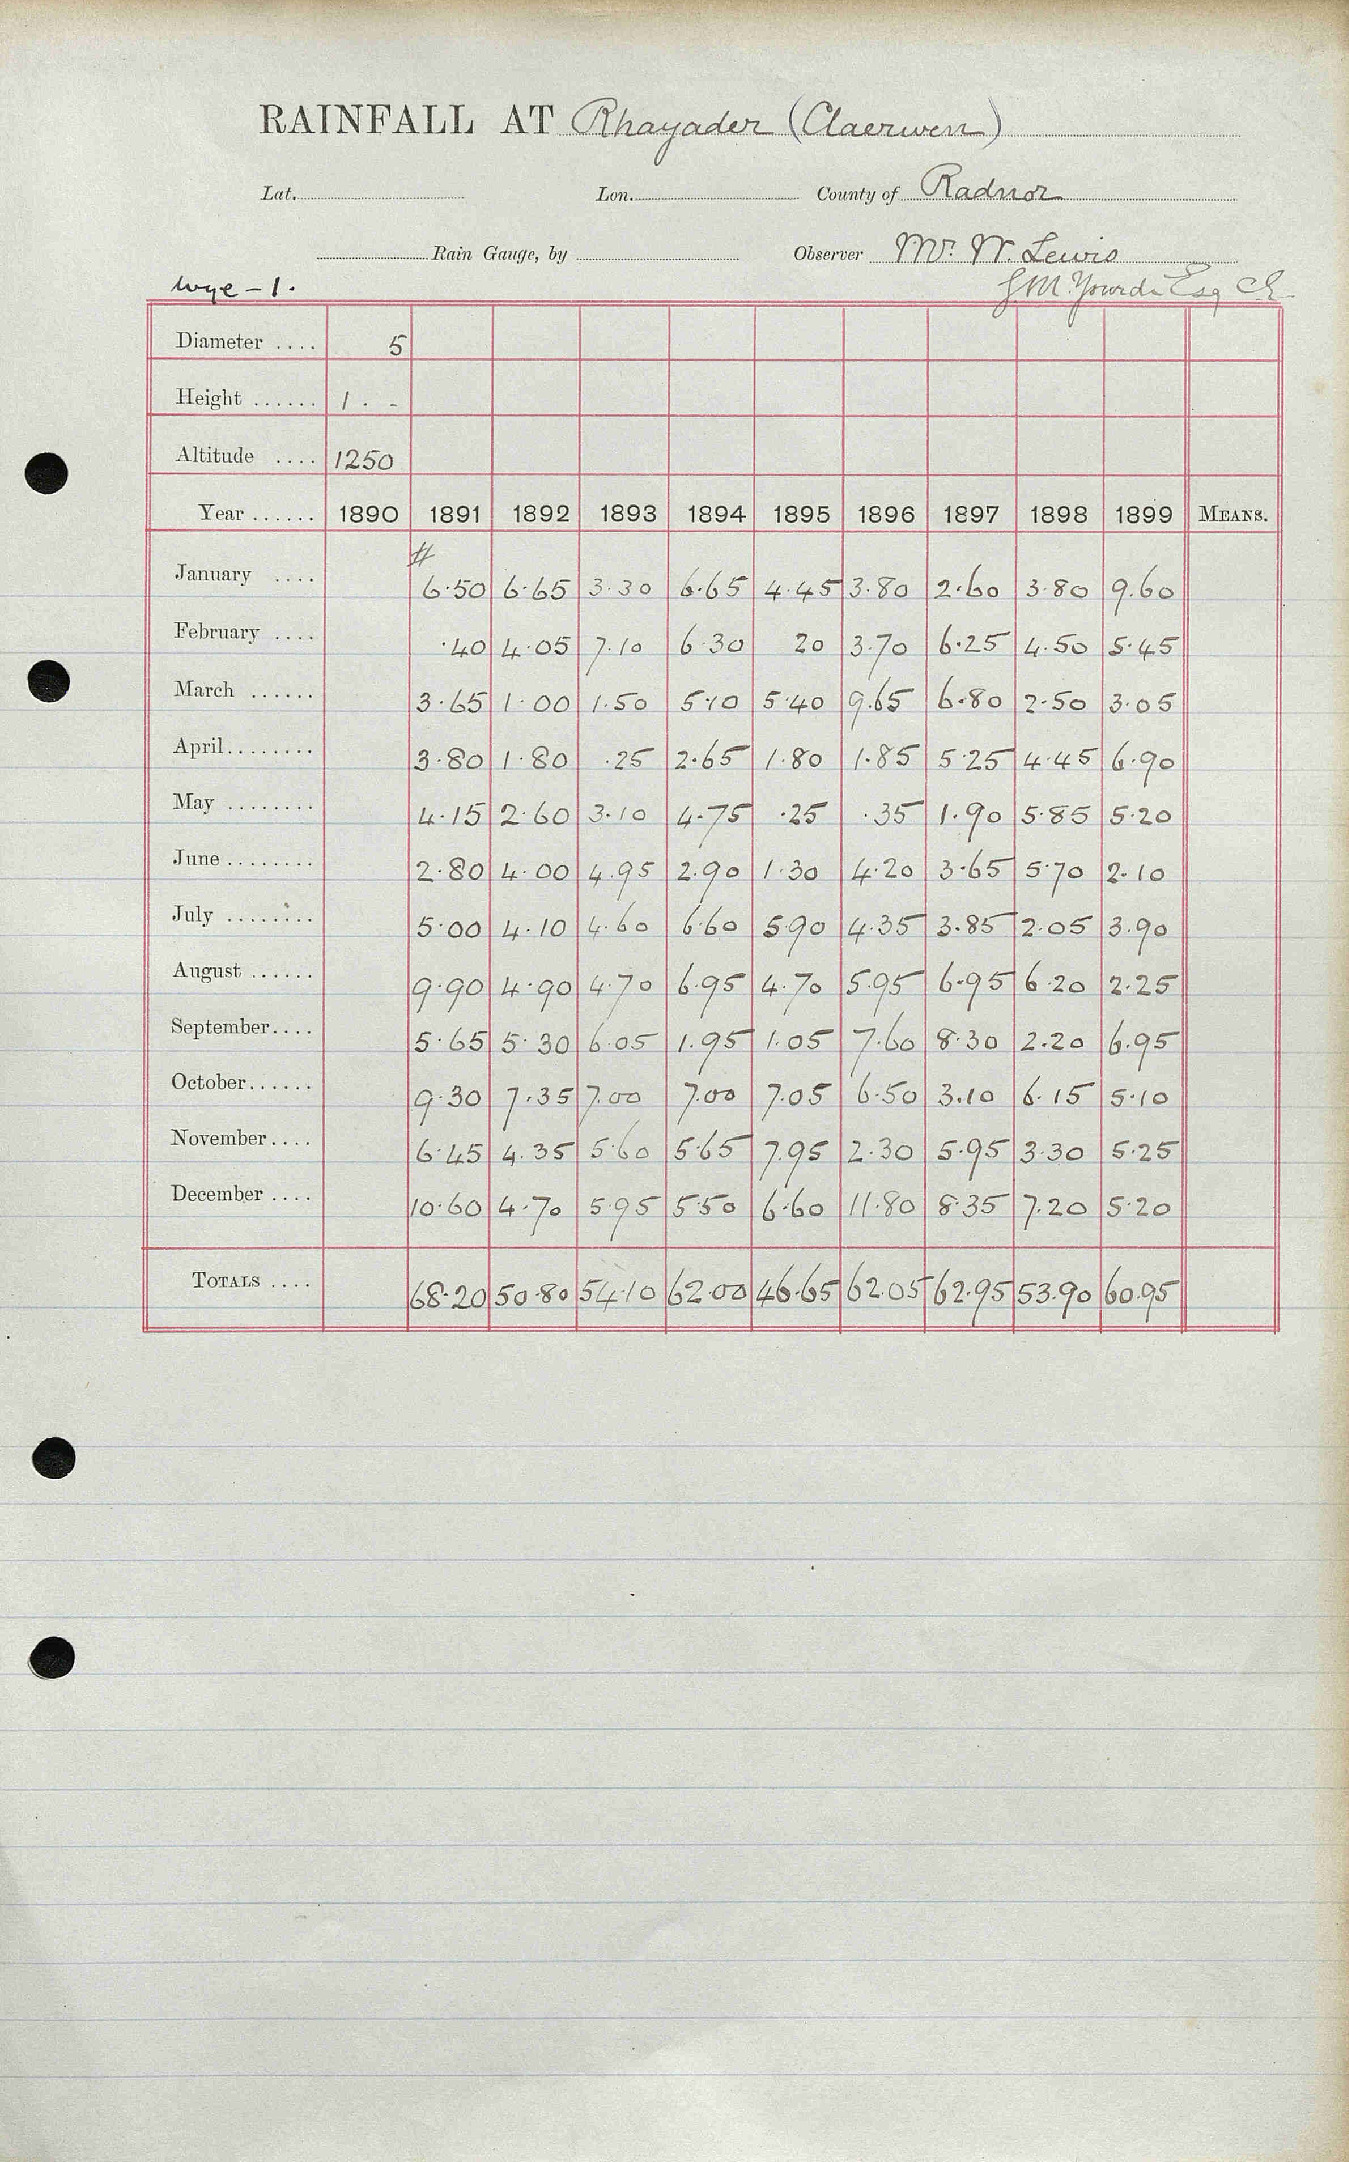 RAINFALL AT Rhayader (Claerwen)
Lat. Lon. County of Radnor
Rain Gauge, by Observer Mr. W. Lewis
Wye - 1. Esq CE
Diameter .... 5
Height ...... 1 . -
Altitude .... 1250
Year ...... 1890 1891 1892 1893 1894 1895 1896 1897 1898 1899 MEANS.
#
January .... 6.50 6.65 3.30 6.65 4.45 3.80 2.60 3.80 9.60
February .... .40 4.05 7.10 6.30 20 3.70 6.25 4.50 5.45
March ...... 3.65 1.00 1.50 5.10 5.40 9.65 6.80 2.50 3.05
April ........ 3.80 1.80 .25 2.65 1.80 1.85 5.25 4.45 6.90
May ........ 4.15 2.60 3.10 4.75 .25 .35 1.90 5.85 5.20
June ........ 2.80 4.00 4.95 2.90 1.30 4.20 3.65 5.70 2.10
July ........ 5.00 4.10 4.60 6.60 5.90 4.35 3.85 2.05 3.90
August ...... 9.90 4.90 4.70 6.95 4.70 5.95 6.95 6.20 2.25
September .... 5.65 5.30 6.05 1.95 1.05 7.60 8.30 2.20 6.95
October ...... 9.30 7.35 7.00 7.00 7.05 6.50 3.10 6.15 5.10
November .... 6.45 4.35 5.60 5.65 7.95 2.30 5.95 3.30 5.25
December .... 10.60 4.70 5.95 5.50 6.60 11.80 8.35 7.20 5.20
TOTALS .... 68.20 50.80 54.10 62.00 46.65 62.05 62.95 53.90 60.95